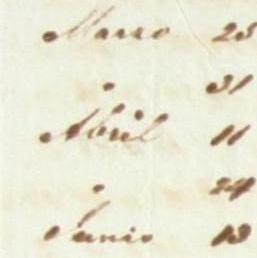 Marzo 23
" 31
Abril 11
" 24
Junio 13